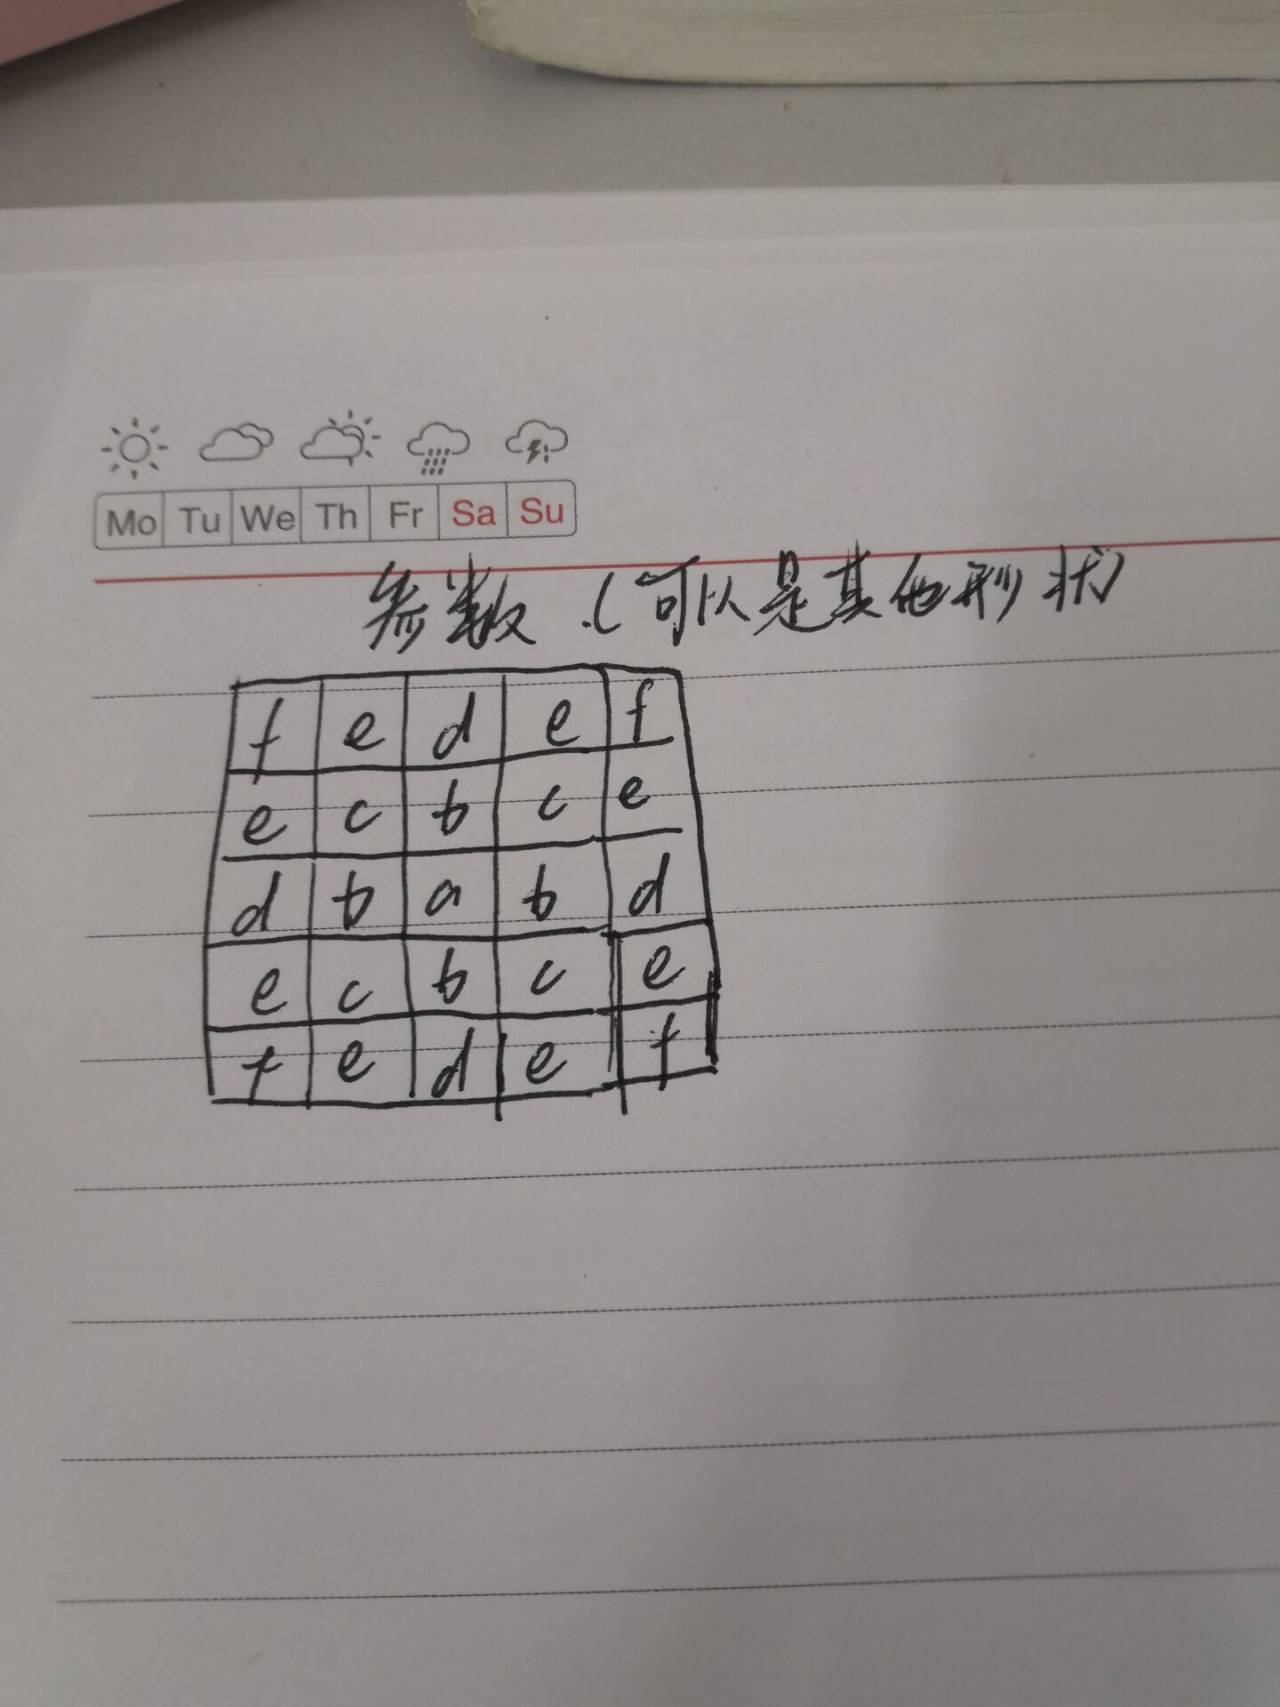 Mo Tu We Th Fr Sa Su
参数.(可以是其他形状)
f e d e f
e c b c e
d b a b d
e c b c e
f e d e f